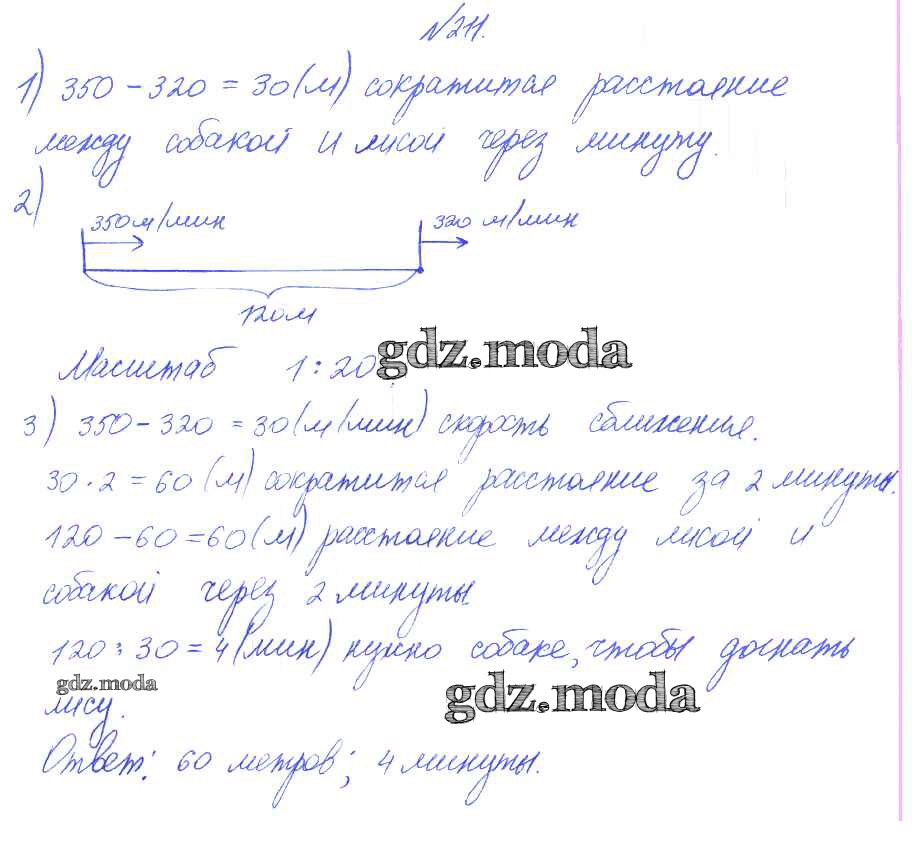 №211.
1) 350 - 320 = 30 (м) сократится расстояние
между собакой и лисой через минуту.
2)
350 м/мин 320 м/мин
120 м
Масштаб 1 : 20
gdz.moda
3) 350 - 320 = 30 (м/мин) скорость сближения.
30 · 2 = 60 (м) сократится расстояние за 2 минуты.
120 - 60 = 60 (м) расстояние между лисой и
собакой через 2 минуты
120 : 30 = 4 (мин) нужно собаке, чтобы догнать
gdz.moda
лису.
gdz.moda
Ответ: 60 метров; 4 минуты.